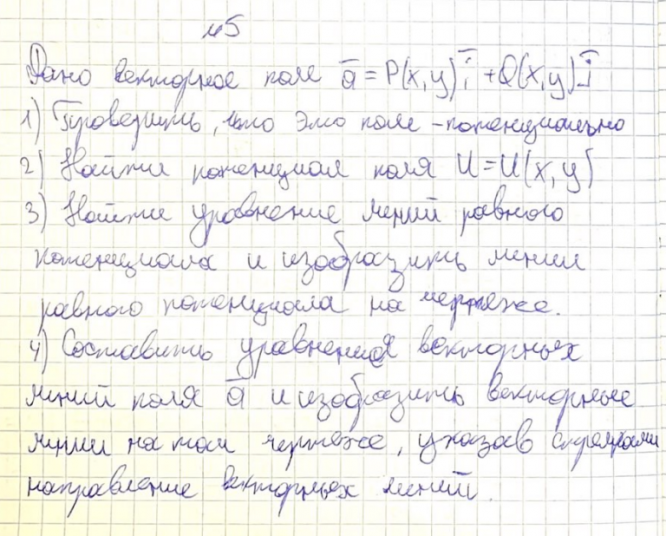 №5
Дано векторное поле ā = P(x,y)ī + Q(x,y)j̄
1) Проверить, что это поле - потенциально
2) Найти потенциал поля U = U(x,y)
3) Найти уравнение линий равного
потенциала и изобразить линии
равного потенциала на чертеже.
4) Составить уравнения векторных
линий поля ā и изобразить векторные
линии на том чертеже, указав стрелками
направление векторных линий.